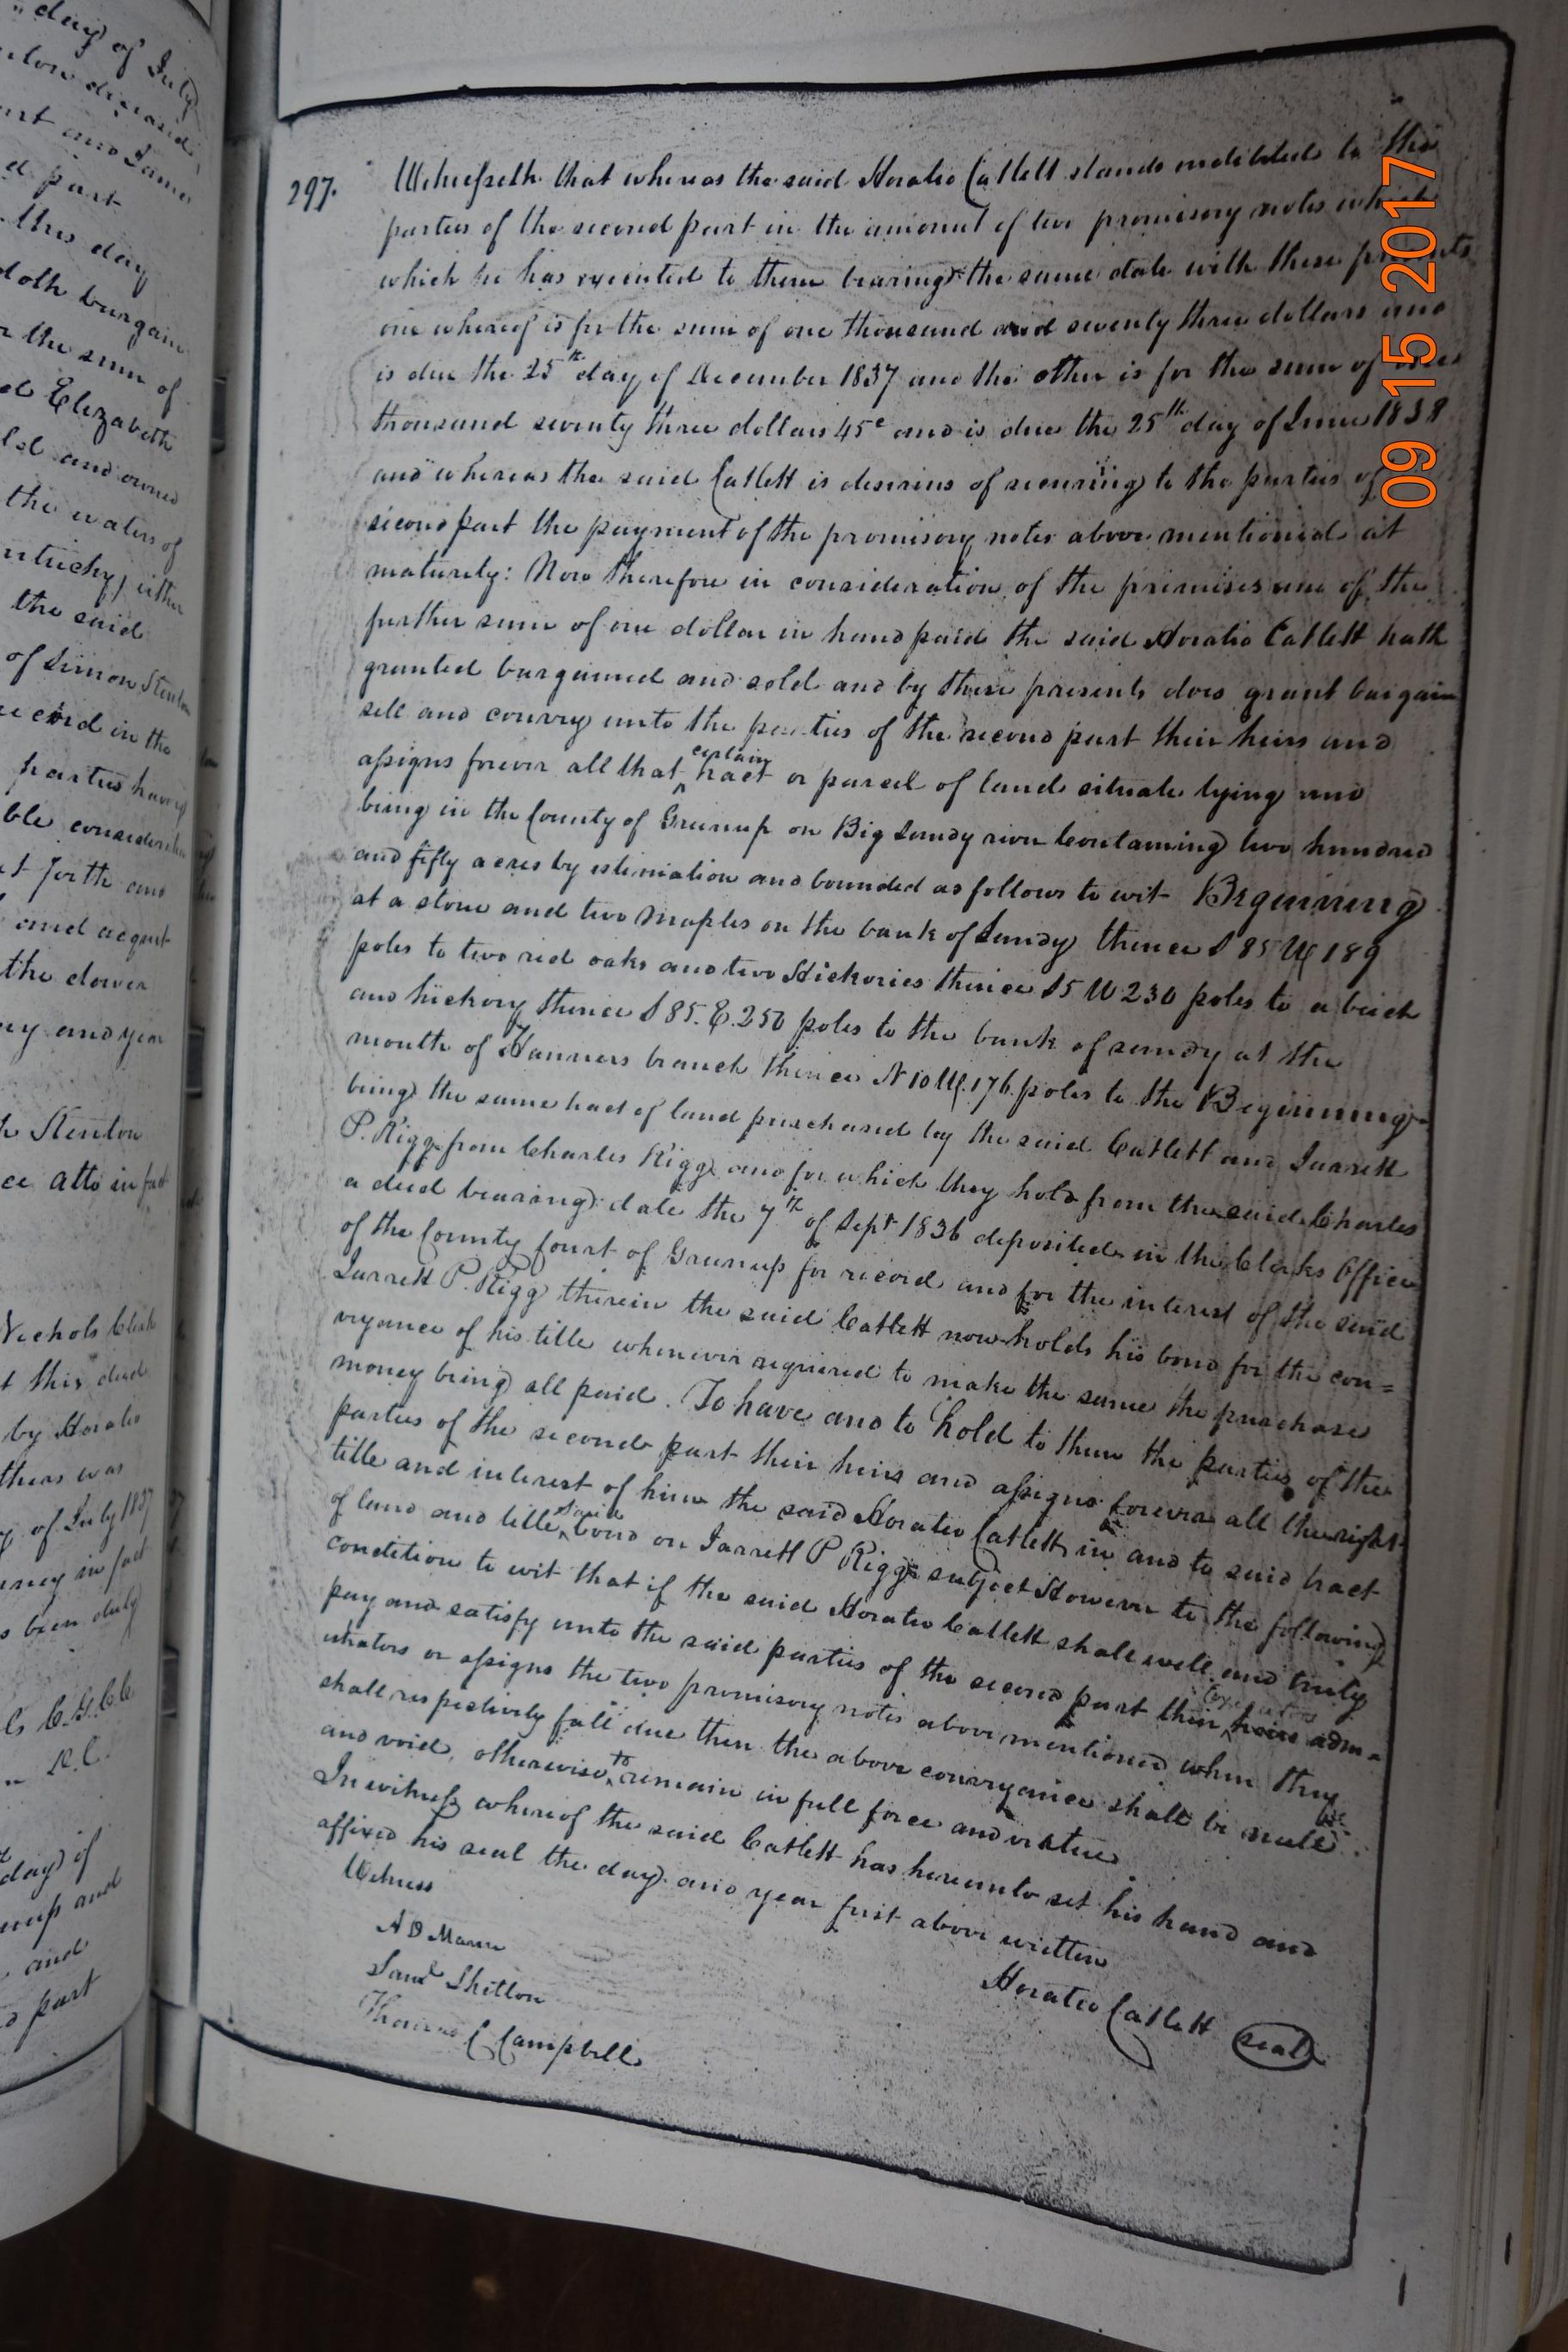 day of July
the sum of
Elizabeth
and owned
the waters of
the said
of Simon
in the
the dower
Stenton
atto in fact
this deed
by Horatio
of July 1837
in fact
been duly
day of
and
part
297.
Witnesseth that whereas the said Horatio Catlett stands indebted to the
parties of the second part in the amount of two promisory notes which
which he has executed to them bearing the same date with these presents
one whereof is for the sum of one thousand and seventy three dollars and
is due the 25th day of December 1837 and the other is for the sum of one
thousand seventy three dollars 45c and is due the 25th day of June 1838
and whereas the said Catlett is desirius of securing to the parties of
second part the payment of the promisory notes above mentioned at
maturely: Now therefore in consideration of the primises and of the
further sum of one dollar in hand paid the said Horatio Catlett hath
granted bargained and sold and by these presents does grant bargain
sell and convey unto the parties of the second part their heirs and
assigns forever all that certain tract or parcel of land situate lying and
being in the County of Greenup on Big Sandy river Containing two hundred
and fifty acres by estimation and bounded as follows to wit Beginning
at a stone and two maples on the bank of Sandy thence S 85 W 189
poles to two red oaks and two Hickories thence S5 W 230 poles to a beech
and hickory thence S 85. E. 250 poles to the bank of sandy at the
mouth of branch thence N 10 W. 176 poles to the Beginning
being the same tract of land purchased by the said Catlett and Jarrett
P. Rigg from Charles Rigg and for which they hold from the said Charles
a deed bearing date the 7th of Sept 1836 deposited in the Clerks Office
of the County Court of Greenup for record and for the interest of the said
Jarrett P. Rigg therein the said Catlett now holds his bond for the con=
veyance of his title whenever required to make the same the purchase
money being all paid. To have and to hold to them the parties of the
parties of the second part their heirs and assigns forever all the right
title and interest of him the said Horatio Catlett in and to said tract
of land and title said bond on Jarrett P Rigg subject However to the following
condition to wit that if the said Horatio Catlett shall well and truly
pay and satisfy unto the said parties of the second part their executors heirs adm=
istrators or assigns the two promisory notes above mentioned when they
shall respectively fall due then the above conveyance shall be null
and void, otherwise to remain in full force and virtue
In witness whereof the said Catlett has hereunto set his hand and
affixed his seal the day and year first above written
Witness
A D Mann
Saml Shelton
Thomas C Campbell
Horatio Catlett seal
09 15 2017